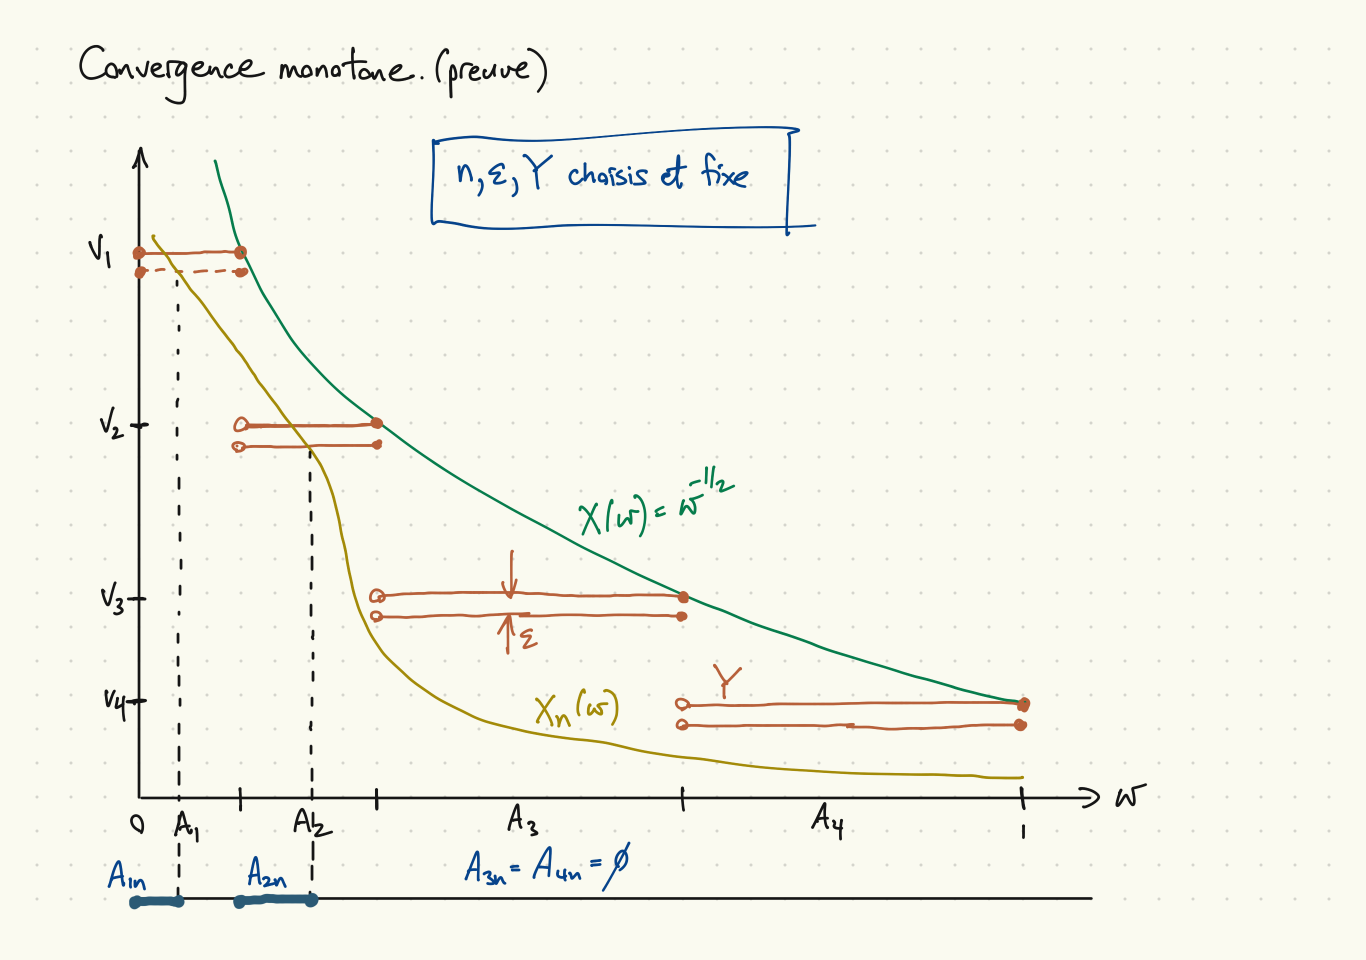 Convergence monotone. (preuve)
n, ε, Y choisis et fixe
V1
V2
X(ω) = ω^-1/2
V3
ε
Y
V4
Xn(ω)
ω
0 A1 A2 A3 A4 1
A1n A2n A3n = A4n = ∅